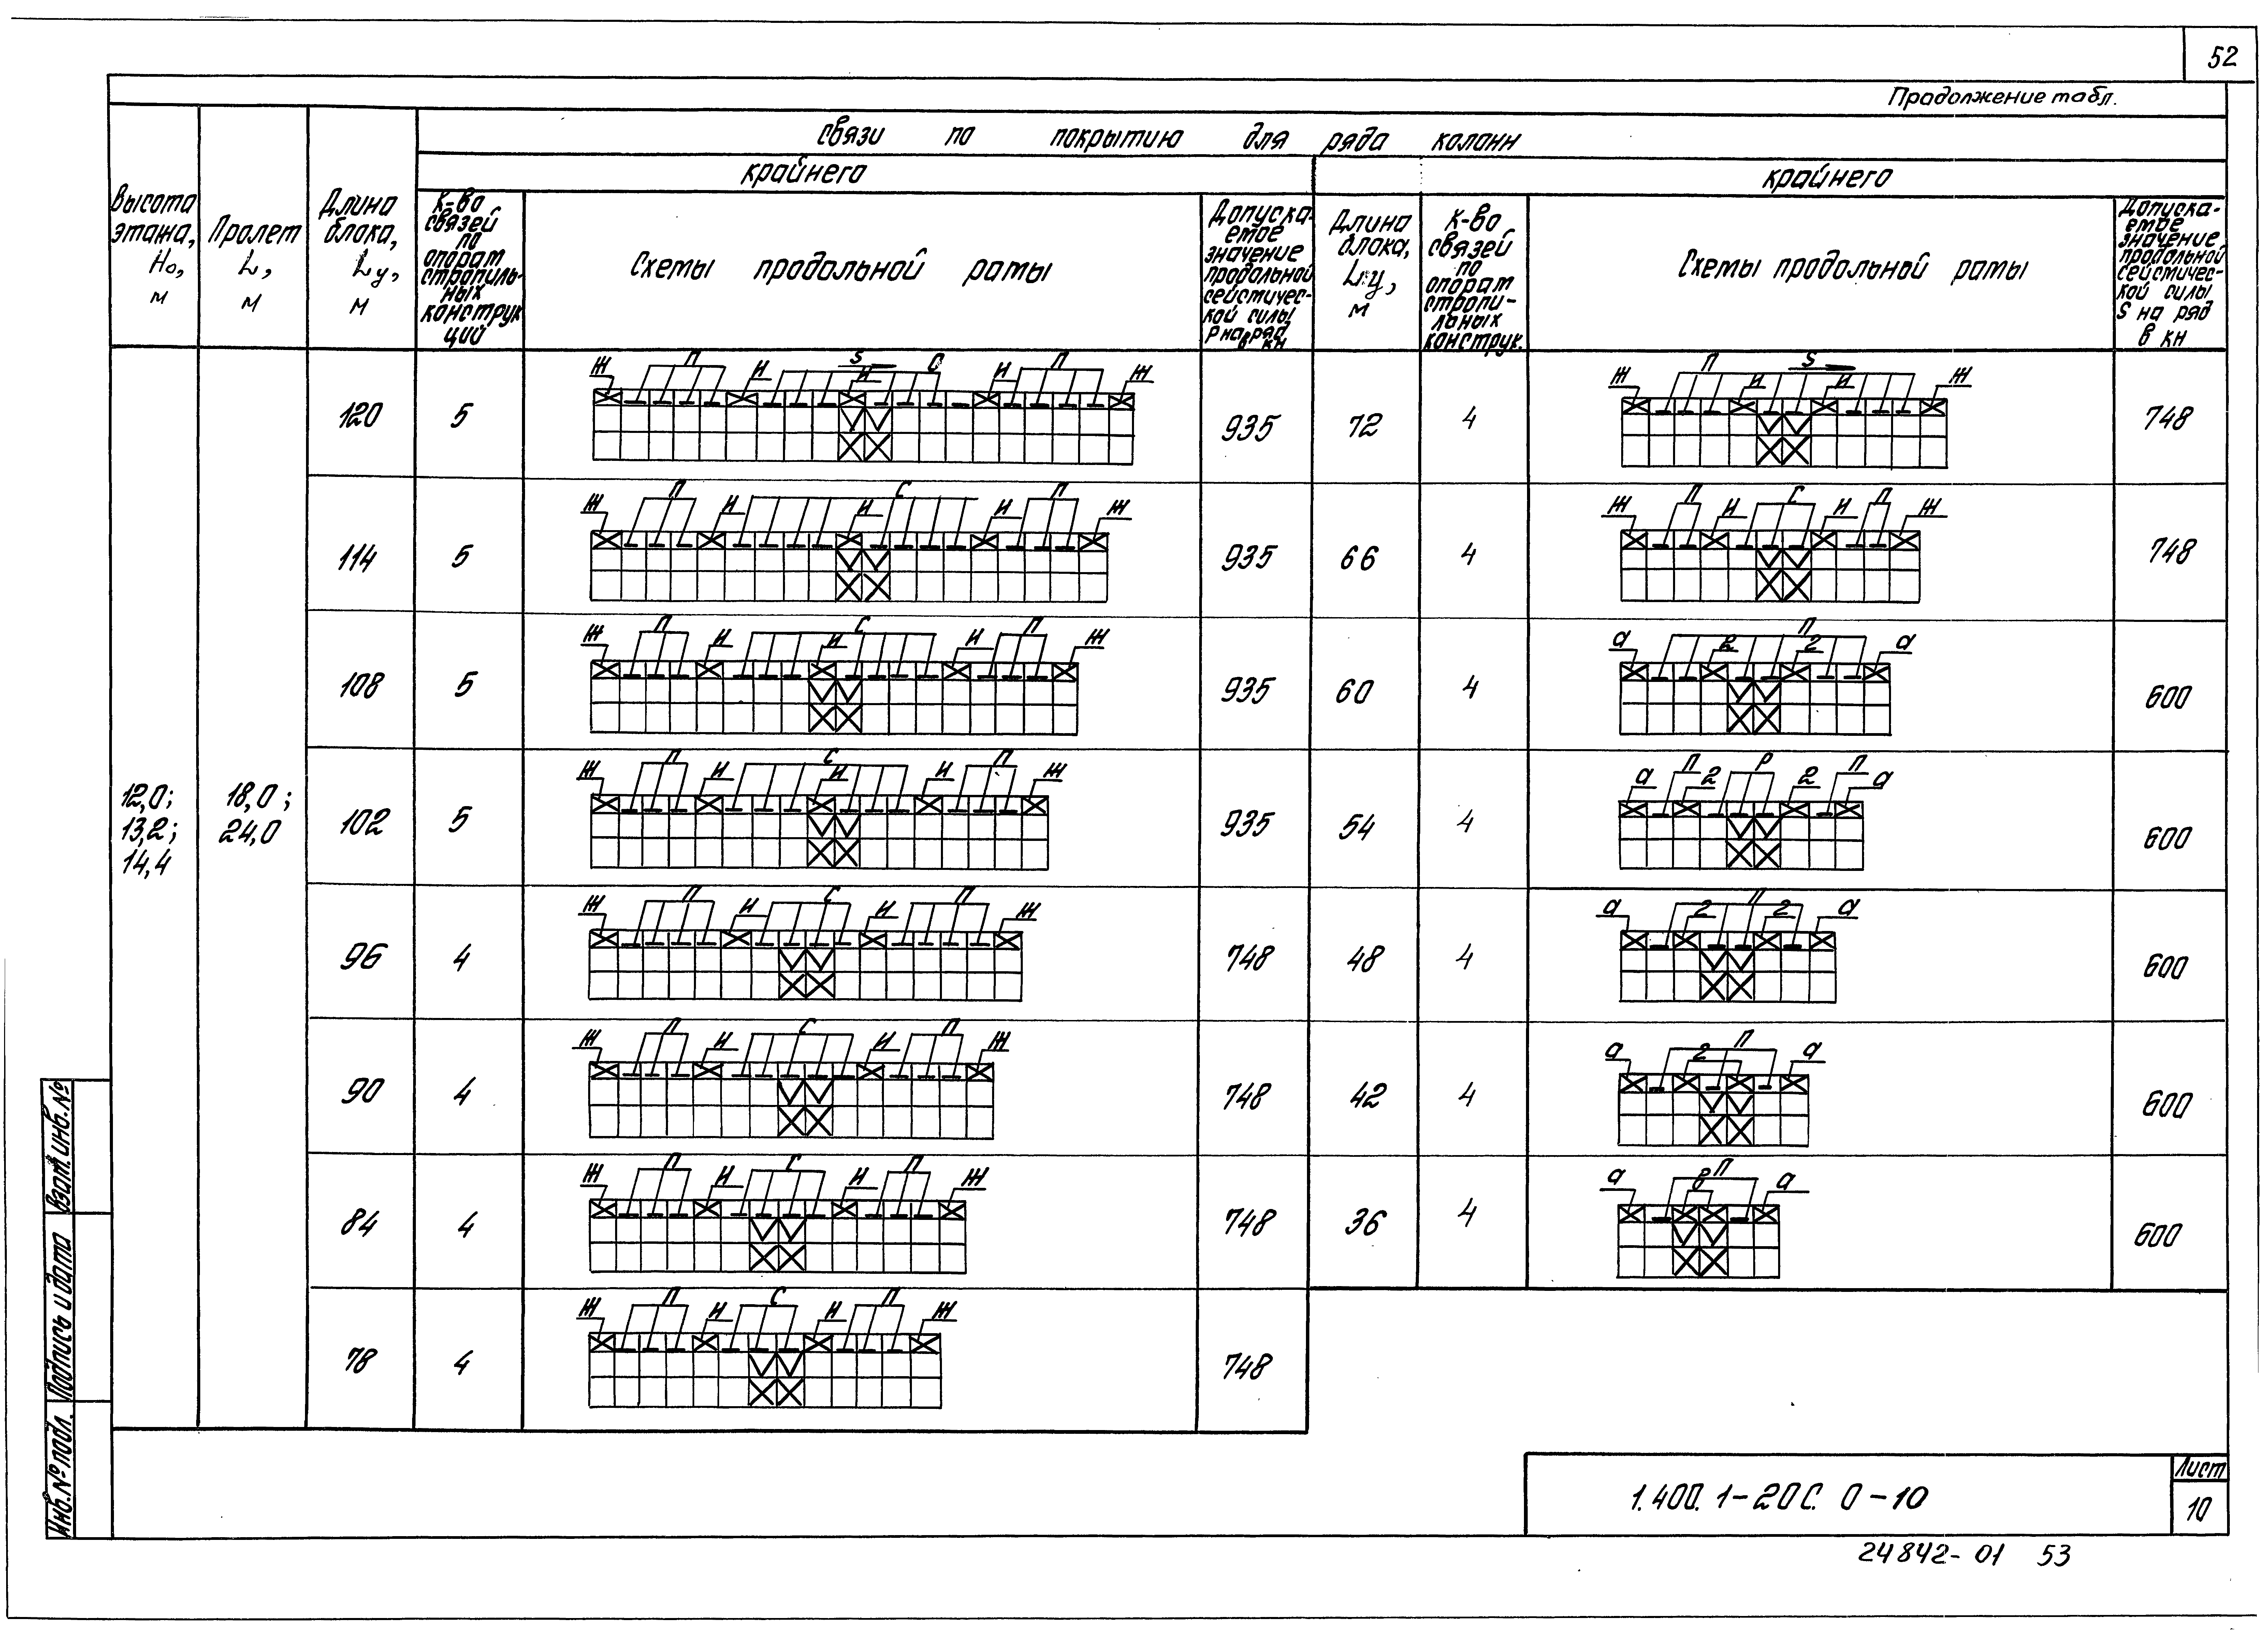 52
Продолжение табл.
связи по покрытию для ряда колонн
крайнего
крайнего
Высота этажа, Но, м
Пролет L, м
Длина блока, Ly, м
К-во связей по опорам стропиль- ных конструк ций
Схемы продольной рамы
Допуска- емое значение продольной сейсмичес- кой силы Р на ряд в кн
Длина блока, Ly, м
К-во связей по опорам стропи- льных конструк.
Схемы продольной рамы
Допуска- емое значение продольной сейсмичес- кой силы S на ряд в кн
12,0; 13,2; 14,4
18,0; 24,0
120 5 Ж П И S И С И П Ж 935
72 4 Ж П И S И Ж 748
114 5 Ж П И И С И П Ж 935
66 4 Ж П И С И П Ж 748
108 5 Ж П И С И И П Ж 935
60 4 а 2 П 2 а 600
102 5 Ж П И С И И П Ж 935
54 4 а П 2 Р 2 П а 600
96 4 Ж П И С И П Ж 748
48 4 а 2 П 2 а 600
90 4 Ж П И С И П Ж 748
42 4 а 2 П а 600
84 4 Ж П И Г И П Ж 748
36 4 а в П а 600
78 4 Ж П И С И П Ж 748
Взам. инв. №
Подпись и дата
Инв. № подл.
1.400.1-20С. 0-10
Лист
10
24842-01 53